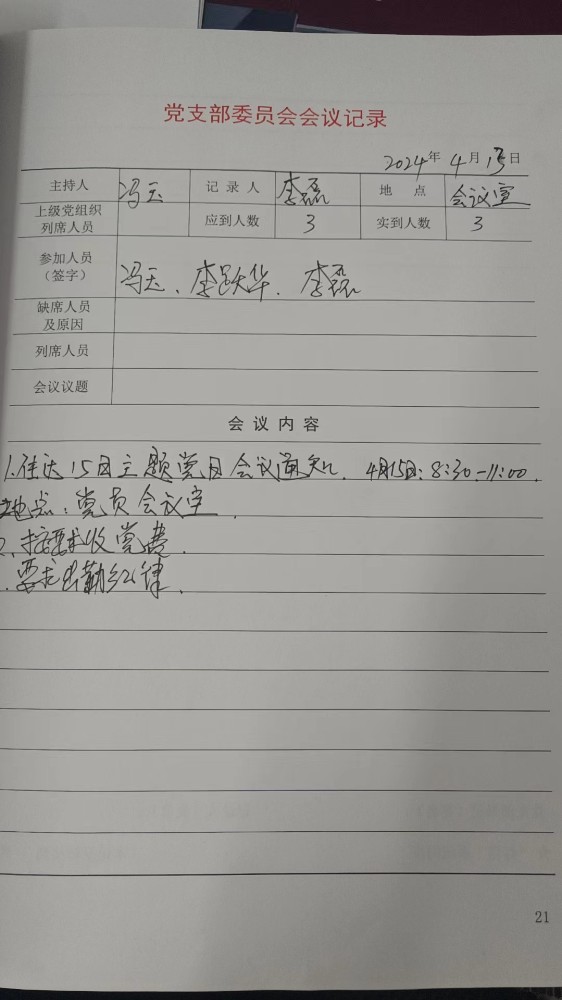 党支部委员会会议记录
2024年 4月13日
主持人 冯玉 记录人 李磊 地点 会议室
上级党组织列席人员 应到人数 3 实到人数 3
参加人员(签字) 冯玉、李跃华、李磊
缺席人员及原因
列席人员
会议议题
会议内容
1.传达15日主题党日会议通知. 4月15日:8:30-11:00.
地点:党员会议室.
2、按要求收党费.
要求出勤纪律.
21